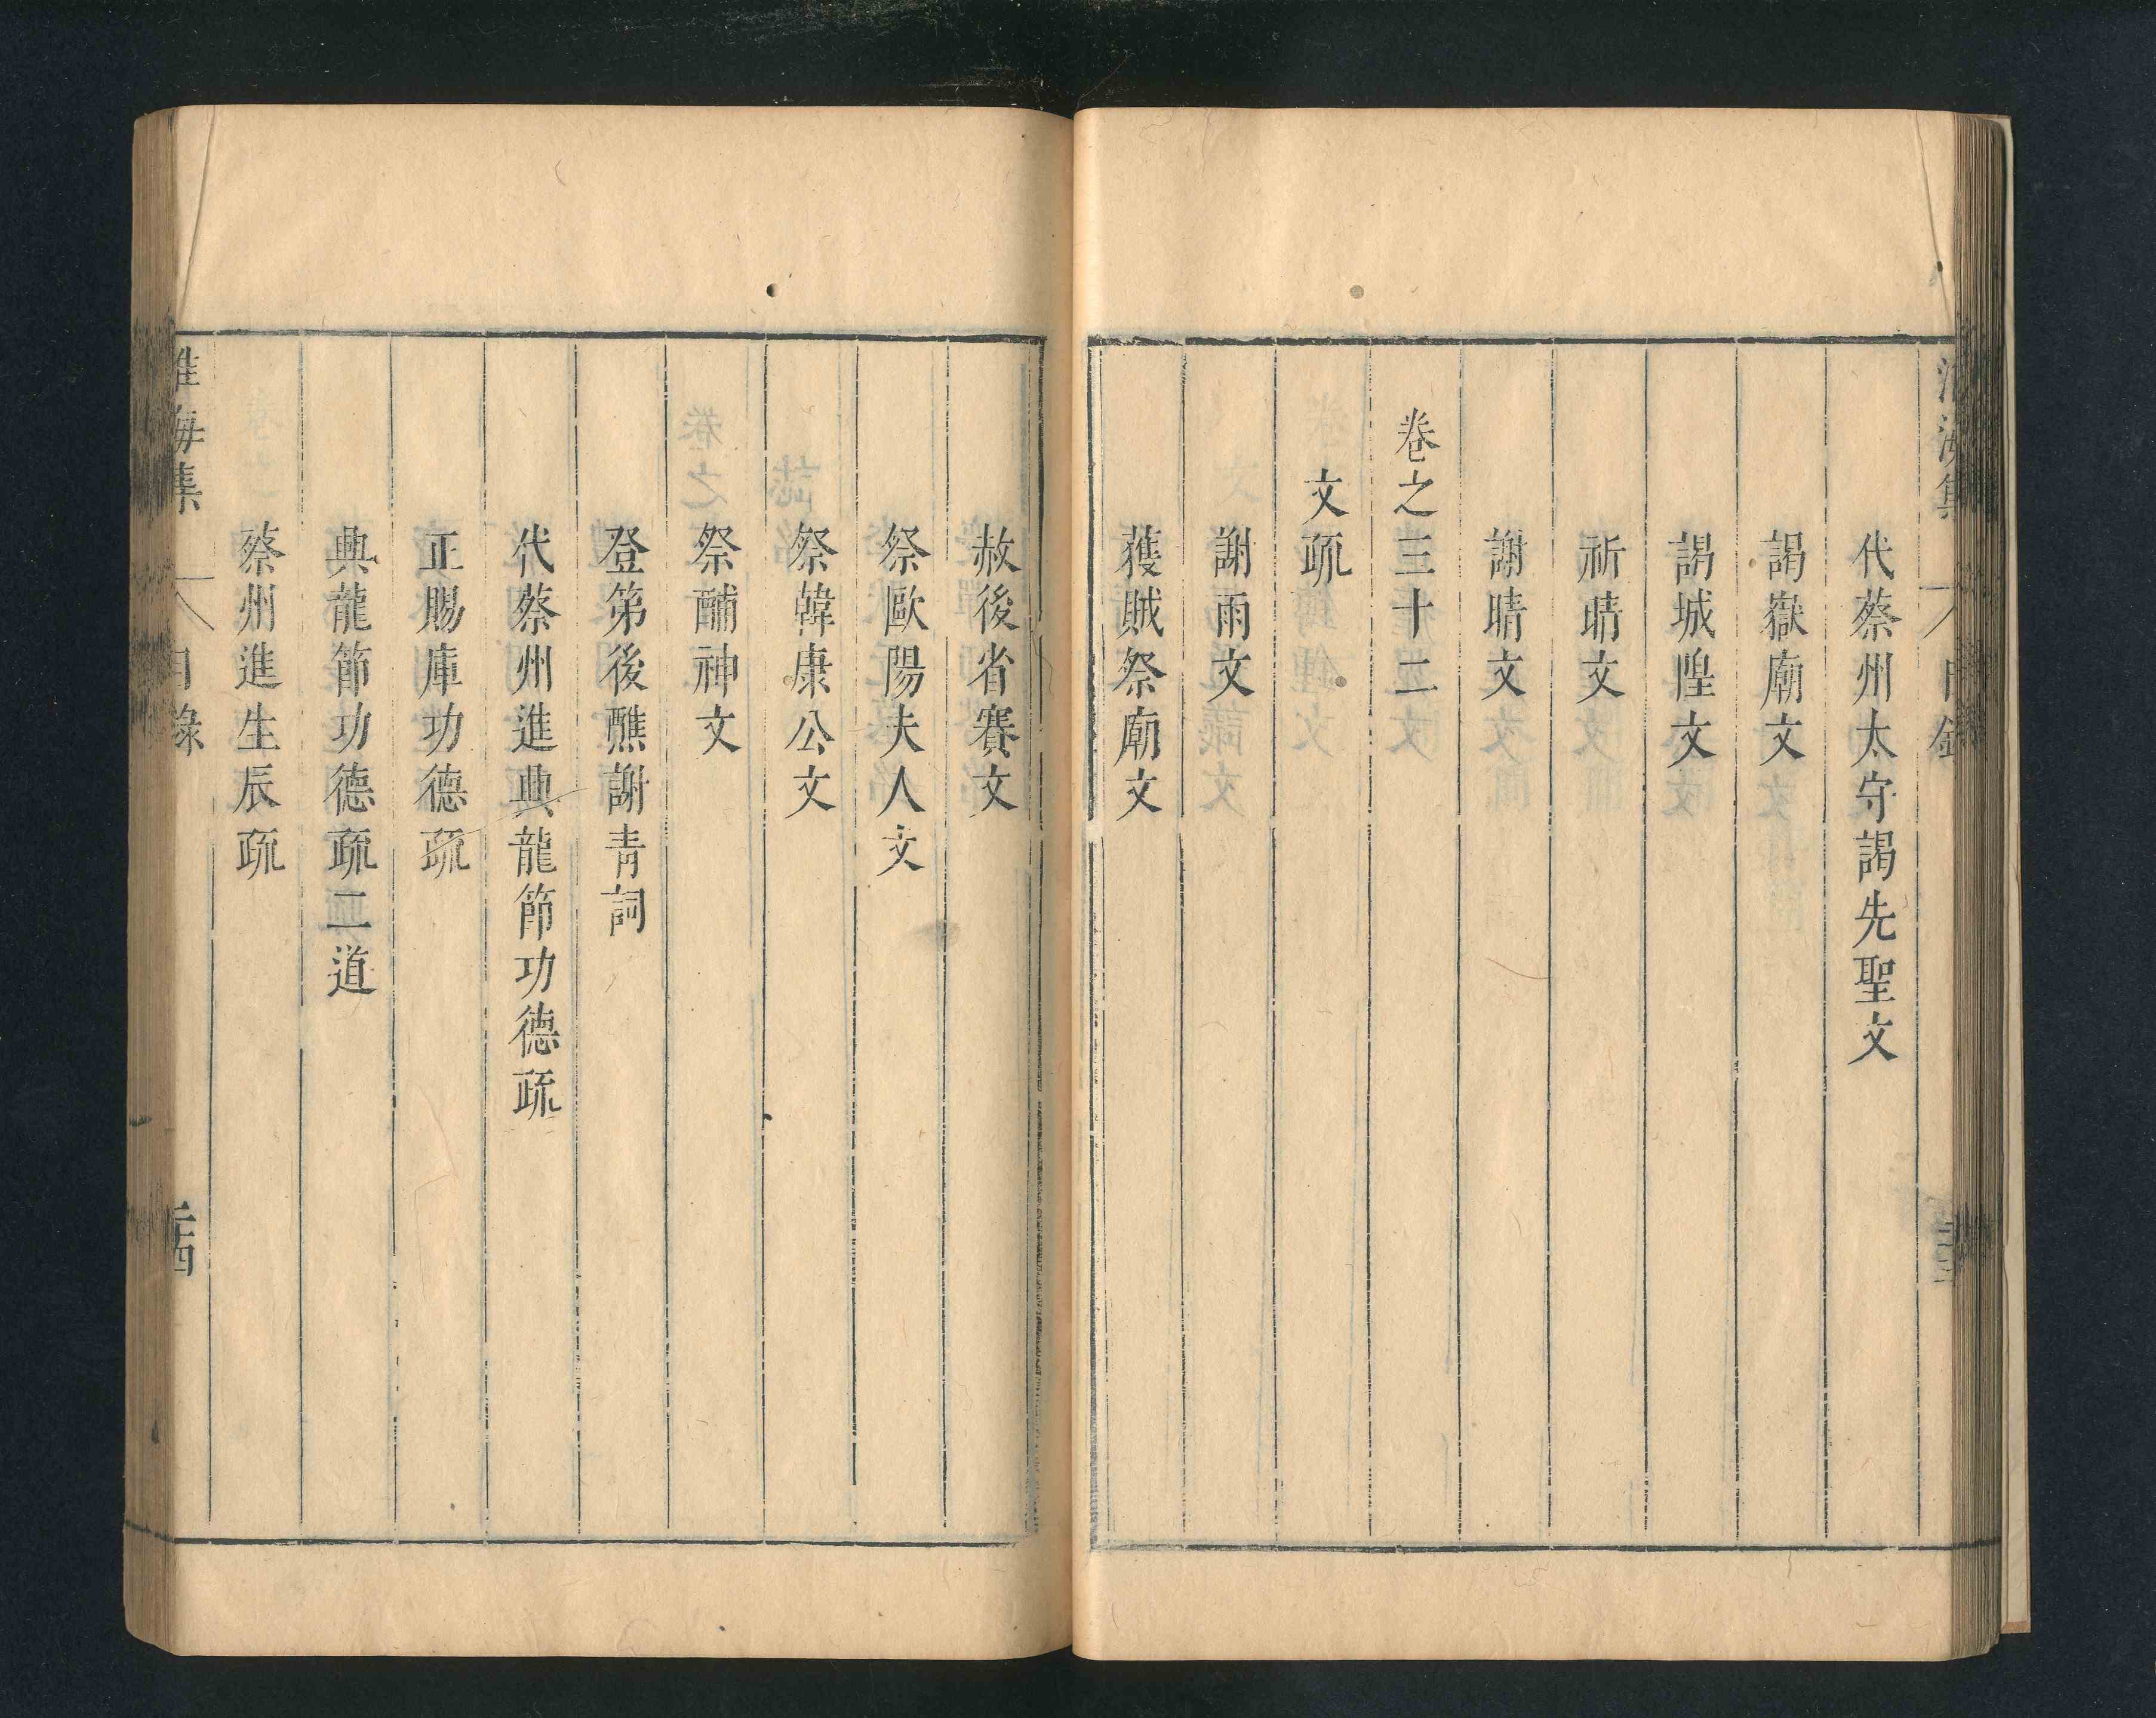 代蔡州太守謁先聖文
謁嶽廟文
謁城隍文
祈晴文
謝晴文
卷之三十二
文疏
謝雨文
獲賊祭廟文
赦後省賽文
祭歐陽夫人文
祭韓康公文
祭酺神文
登第後醮謝青詞
代蔡州進興龍節功德疏
正賜庫功德疏
興龍節功德疏二道
蔡州進生辰疏
淮海集
目錄
二十四